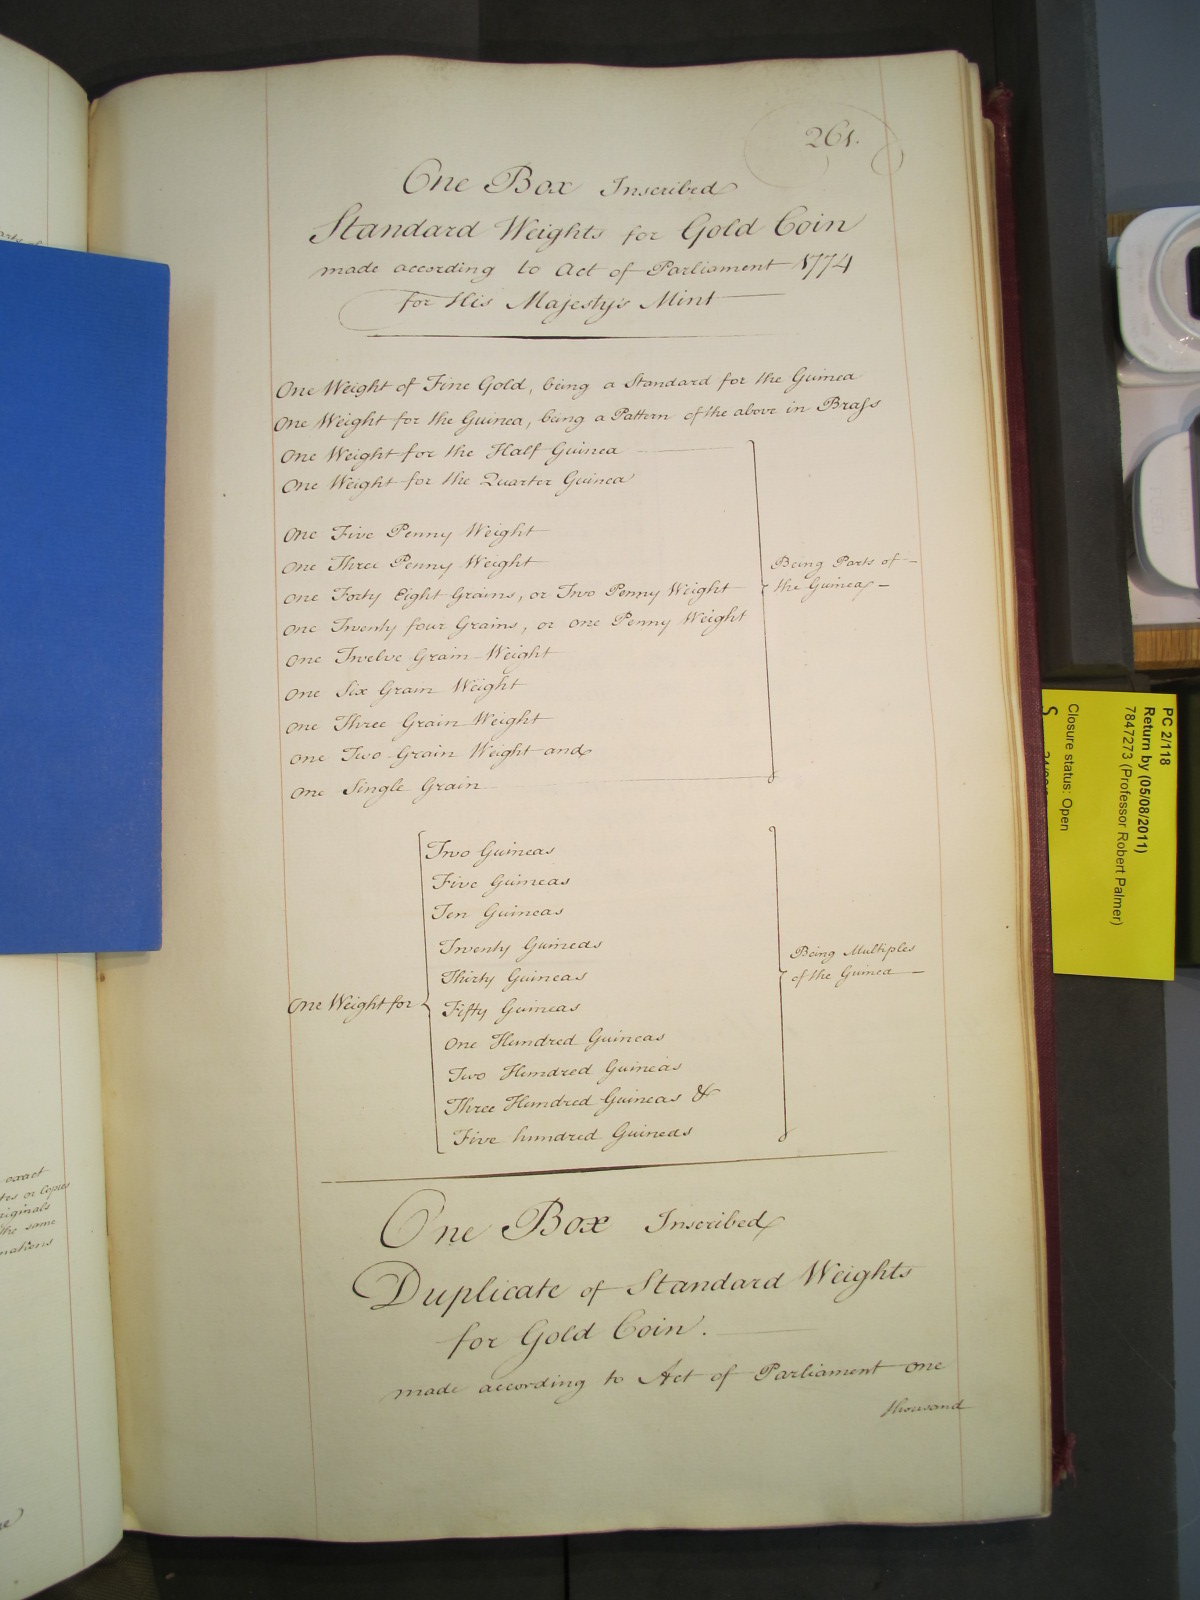 261.
One Box Inscribed
Standard Weights for Gold Coin
made according to Act of Parliament 1774
for His Majesty's Mint
One Weight of Fine Gold, being a Standard for the Guinea
One Weight for the Guinea, being a Pattern of the above in Brass
One Weight for the Half Guinea
One Weight for the Quarter Guinea
One Five Penny Weight
One Three Penny Weight
one Forty Eight Grains, or Two Penny Weight
one Twenty four Grains, or one Penny Weight
one Twelve Grain Weight
one Six Grain Weight
one Three Grain Weight
one Two Grain Weight and
one Single Grain
Being Parts of
the Guinea
One Weight for
Two Guineas
Five Guineas
Ten Guineas
Twenty Guineas
Thirty Guineas
Fifty Guineas
One Hundred Guineas
Two Hundred Guineas
Three Hundred Guineas &
Five hundred Guineas
Being Multiples
of the Guinea
One Box Inscribed
Duplicate of Standard Weights
for Gold Coin.
made according to Act of Parliament one
thousand
exact
or Copies
riginals
the same
mations
PC 2/118
Return by (05/08/2011)
7847273 (Professor Robert Palmer)
Closure status: Open
S